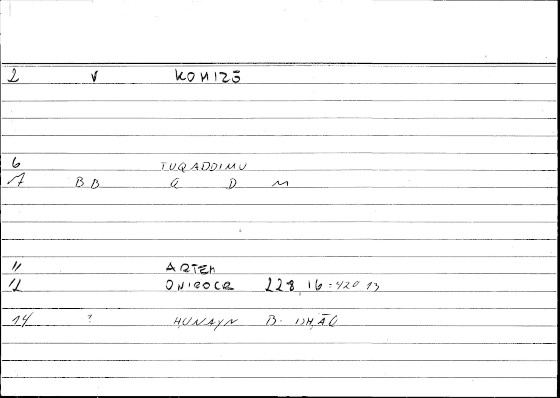 2 V KOMIZŌ
6 TUQADDIMU
7 BB Q D M
11 ARTEM
12 ONIROCR 228, 16 = 420 13
14 ? ḤUNAYN B. ISḤĀQ